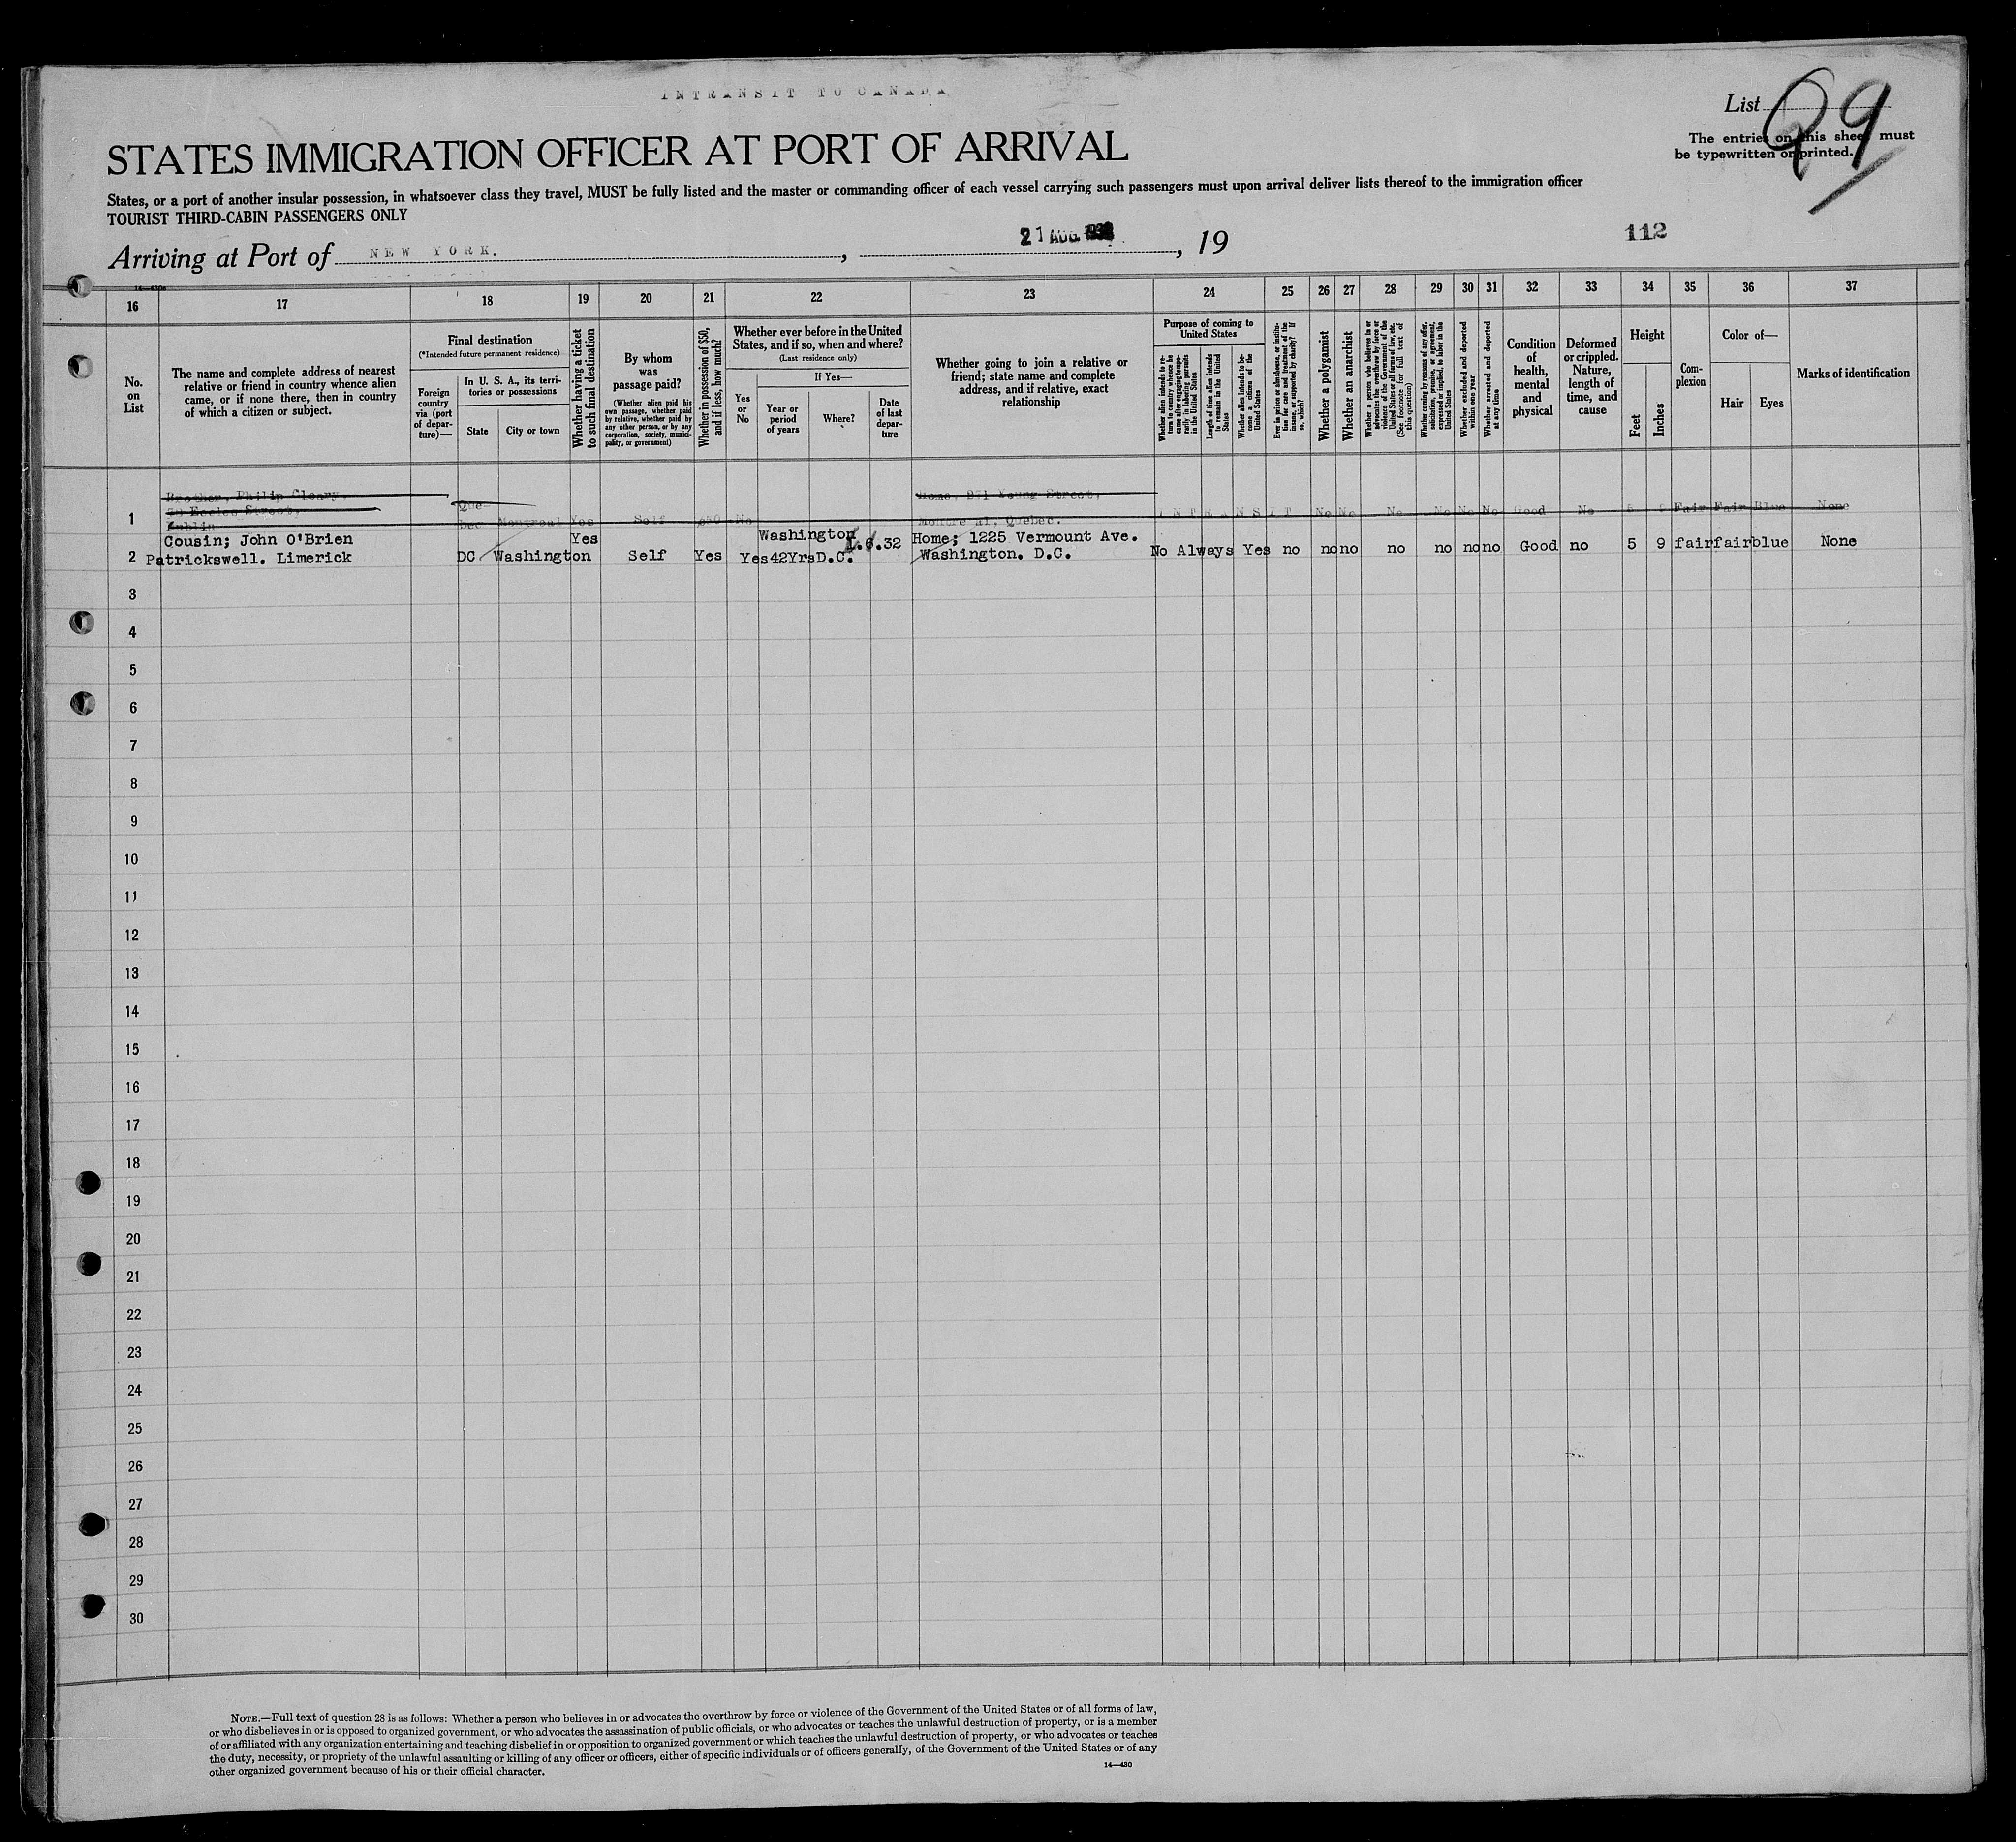 INTRANSIT TO CANADA
List 29
The entries on this sheet must
be typewritten or printed.
STATES IMMIGRATION OFFICER AT PORT OF ARRIVAL
States, or a port of another insular possession, in whatsoever class they travel, MUST be fully listed and the master or commanding officer of each vessel carrying such passengers must upon arrival deliver lists thereof to the immigration officer
TOURIST THIRD-CABIN PASSENGERS ONLY
Arriving at Port of NEW YORK. , 21 AUG 1932 , 19
112
14—430a
16 17 18 19 20 21 22 23 24 25 26 27 28 29 30 31 32 33 34 35 36 37
No.
on
List
The name and complete address of nearest
relative or friend in country whence alien
came, or if none there, then in country
of which a citizen or subject.
Final destination
(*Intended future permanent residence)
Foreign
country
via (port
of depar-
ture)—
In U. S. A., its terri-
tories or possessions
State
City or town
Whether having a ticket
to such final destination
By whom
was
passage paid?
(Whether alien paid his
own passage, whether paid
by relative, whether paid by
any other person, or by any
corporation, society, munici-
pality, or government)
Whether in possession of $50,
and if less, how much?
Whether ever before in the United
States, and if so, when and where?
(Last residence only)
Yes
or
No
If Yes—
Year or
period
of years
Where?
Date
of last
depar-
ture
Whether going to join a relative or
friend; state name and complete
address, and if relative, exact
relationship
Purpose of coming to
United States
Whether alien intends to re-
turn to country whence he
came after engaging tempo-
rarily in laboring pursuits
in the United States
Length of time alien intends
to remain in the United
States
Whether alien intends to be-
come a citizen of the
United States
Ever in prison or almshouse, or institu-
tion for care and treatment of the
insane, or supported by charity? If
so, which?
Whether a polygamist
Whether an anarchist
Whether a person who believes in or
advocates the overthrow by force or
violence of the Government of the
United States or all forms of law, etc.
(See footnote for full text of
this question)
Whether coming by reasons of any offer,
solicitation, promise, or agreement,
expressed or implied, to labor in the
United States
Whether excluded and deported
within one year
Whether arrested and deported
at any time
Condition
of
health,
mental
and
physical
Deformed
or crippled.
Nature,
length of
time, and
cause
Height
Feet
Inches
Com-
plexion
Color of—
Hair
Eyes
Marks of identification
Brother, Philip Cleary,
Eccles Street,
Dublin
1 Que-
bec Montreal Yes Self No
Home, Young Street,
Montreal, Quebec.
INTRANSIT No No No No No No Good No Fair Fair Blue None
Cousin; John O'Brien Yes Washington Home; 1225 Vermount Ave.
2 Patrickswell. Limerick DC Washington Self Yes Yes 42Yrs D.C. .32 Washington. D.C. No Always Yes no no no no no no no Good no 5 9 fair fair blue None
3
4
5
6
7
8
9
10
11
12
13
14
15
16
17
18
19
20
21
22
23
24
25
26
27
28
29
30
NOTE.—Full text of question 28 is as follows: Whether a person who believes in or advocates the overthrow by force or violence of the Government of the United States or of all forms of law,
or who disbelieves in or is opposed to organized government, or who advocates the assassination of public officials, or who advocates or teaches the unlawful destruction of property, or is a member
of or affiliated with any organization entertaining and teaching disbelief in or opposition to organized government or which teaches the unlawful destruction of property, or who advocates or teaches
the duty, necessity, or propriety of the unlawful assaulting or killing of any officer or officers, either of specific individuals or of officers generally, of the Government of the United States or of any
other organized government because of his or their official character.
14—430